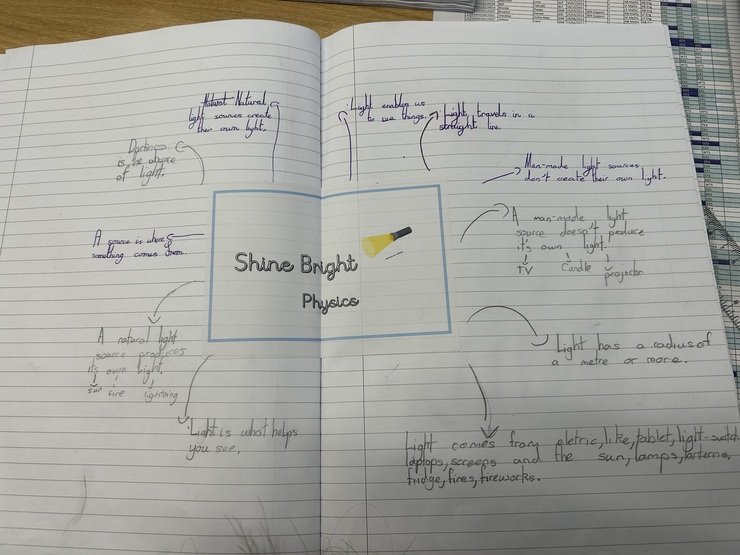 Natural Natural
light sources create
their own light.
Light enables us
to see things.
Light travels in a
straight line.
Darkness
is the absence
of light.
Man-made light sources
don't create their own light.
A source is where
something comes from.
A man-made light
source doesn't produce
it's own light.
TV Candle projector
Shine Bright
Physics
A natural light
source produces
its own light.
sun fire lightning
Light has a radius of
a metre or more.
Light is what helps
you see.
Light comes from eletric, like, tablet, light-switch
laptops, screens and the sun, lamps, lanterns,
fridge, fires, fireworks.